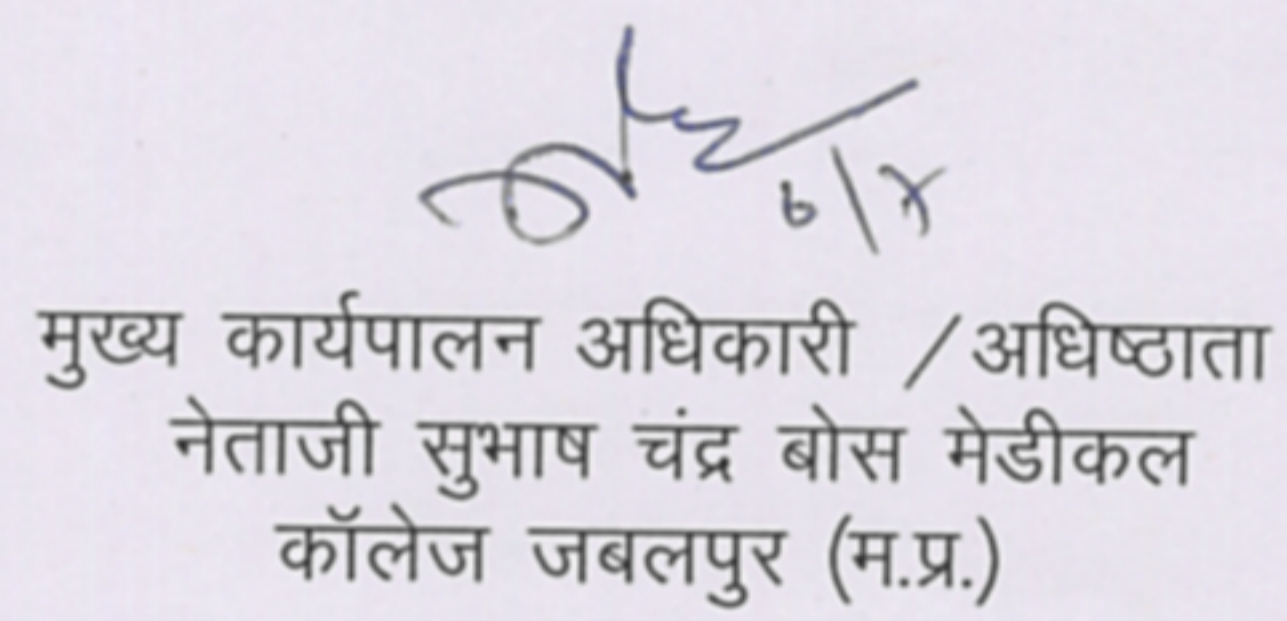 मुख्य कार्यपालन अधिकारी / अधिष्ठाता
नेताजी सुभाष चंद्र बोस मेडीकल
कॉलेज जबलपुर (म.प्र.)